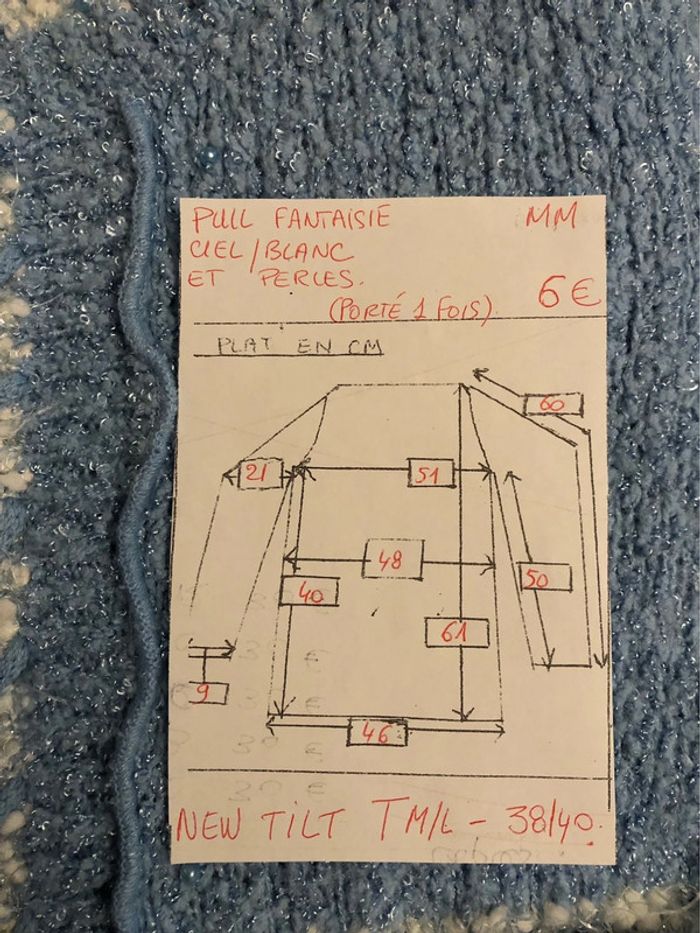 PULL FANTAISIE MM
CIEL/BLANC
ET PERLES.
(PORTÉ 1 FOIS) 6€
PLAT EN CM
60
21 51
48
50
40
61
9
46
NEW TILT TM/L - 38/40.